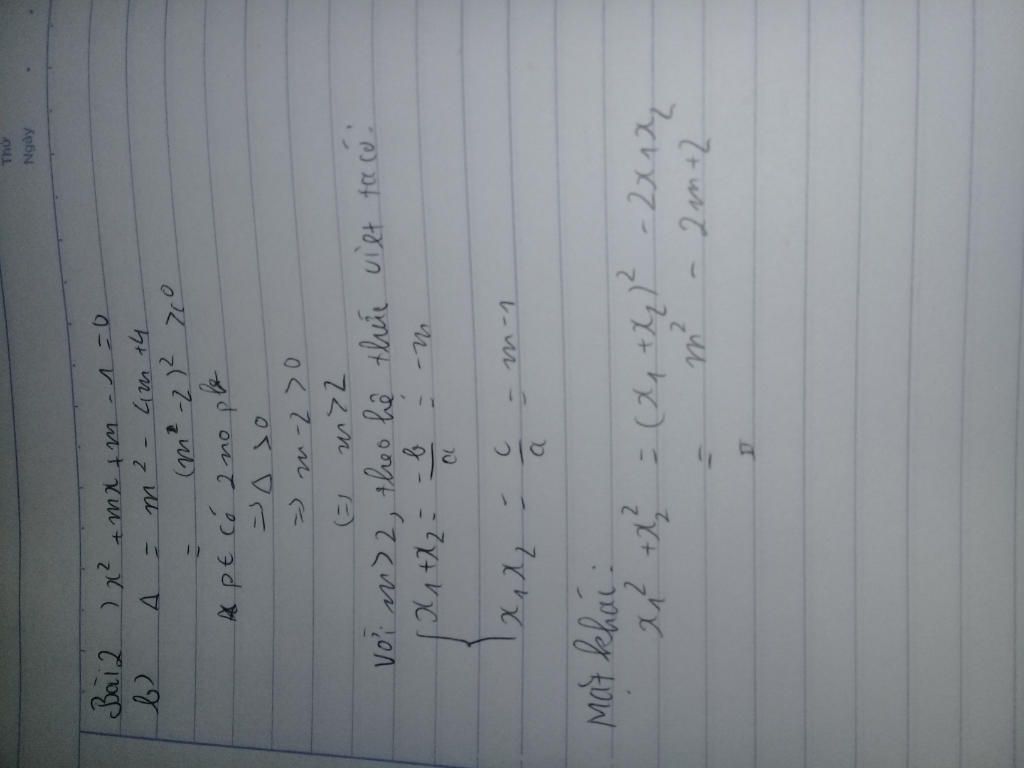 Thứ
Ngày
Bài 2) x² + mx + m - 1 = 0
b) Δ = m² - 4m + 4
= (m - 2)² ≥ 0
pt có 2 no pb
=> Δ > 0
=> m - 2 > 0
(=) m > 2
Với m > 2, theo hệ thức viét ta có:
{ x₁ + x₂ = -b/a = -m
x₁x₂ = c/a = m - 1
Mặt khái:
x₁² + x₂² = (x₁ + x₂)² - 2x₁x₂
= m² - 2m + 2
=